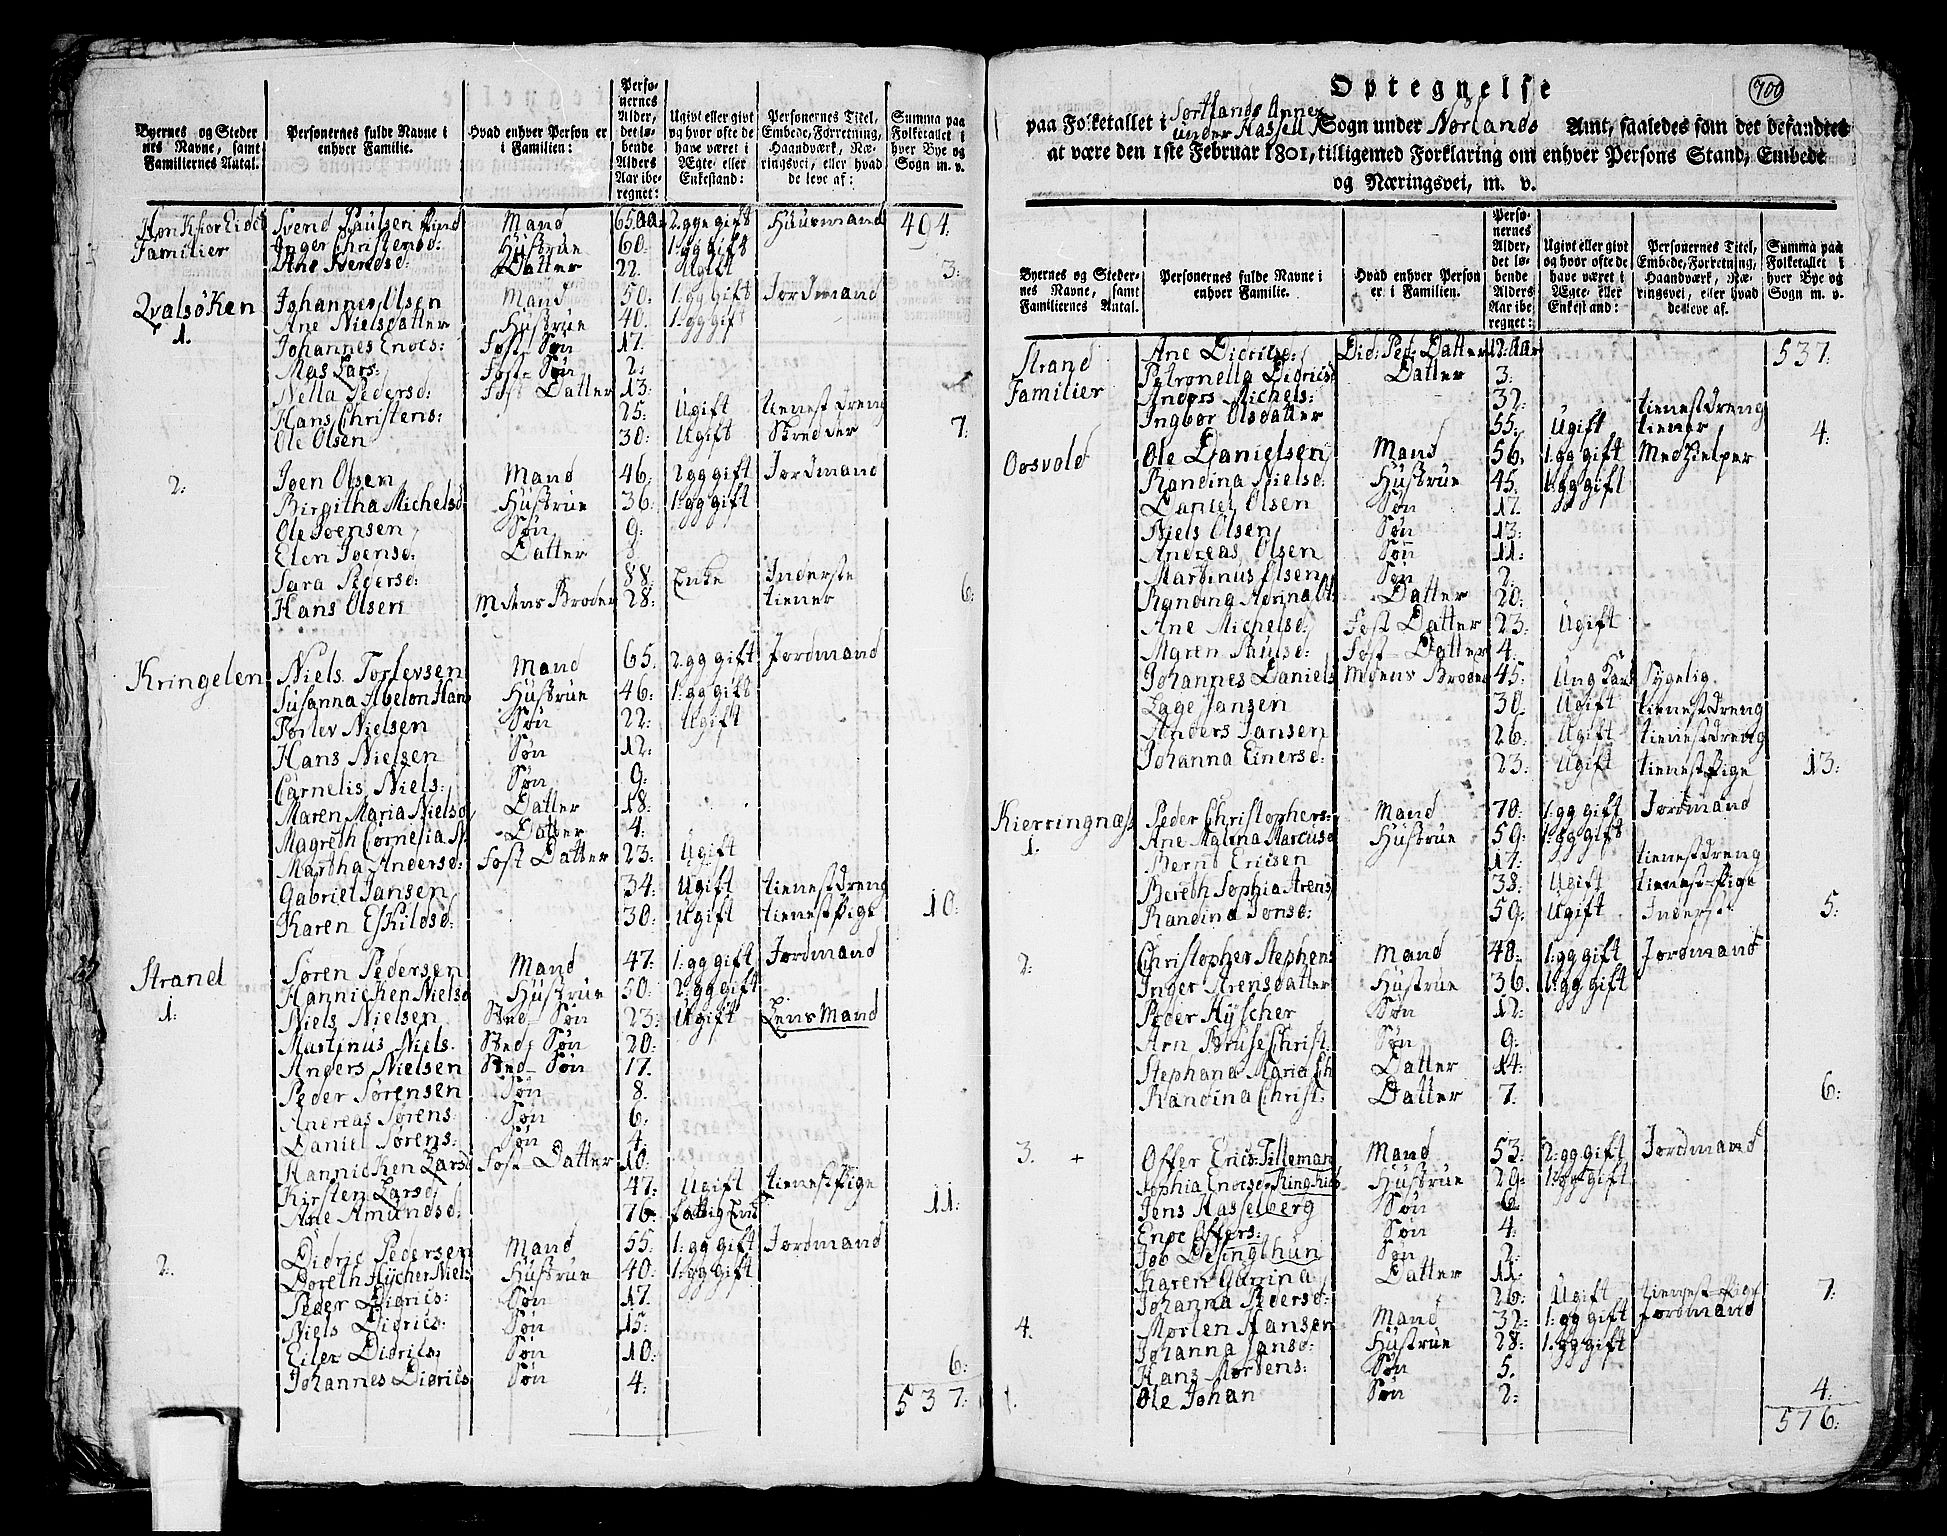 Byernes og Steder
nes Navne, samt
Familiernes Antal.
Personernes fulde Navne i
enhver Familie.
Hvad enhver Person er
i Familien:
Perso-
nernes
Alder,
det lø-
bende
Alders
Aar ibe-
regnet:
Ugivt eller givt
og hvor ofte de
have været i
Ægte- eller
Enkestand:
Personernes Titel,
Embede, Forretning,
Haandværk, Næ-
ringsvei, eller hvad
de leve af:
Summa paa
Folketallet i
hver Bye og
Sogn m. v.
Svend Paulsen Mand 65 aar 2 gge gift Huusmand 494.
Familier Inger Christensd: Hustrue 60. 1: gg gift
Ane Svendsd: Datter 22. Ugift 3:
Qvalsöken Johannes Olsen Mand 50: 1: gg gift Jordmand
1. Ane Nielsdatter Hustrue 40. 1: gg gift
Johannes Enocs: Fost: Søn 17.
Mas Lars: Fost- Søn 2:
Nella Pedersd: Fost Datter 13:
Hans Christens: 25: Ugift tienest Dreng
Ole Olsen 30: Ugift Skredder 7:
2: Joen Olsen Mand 46. 2 gg gift Jordmand
Birgitha Michelsd Hustrue 36: 1: gg gift
Ole Joensen Søn 9:
Elen Joensd: Datter
Sara Pedersd: 88: Enke Inderste
Hans Olsen Mdens Broder 28: tiener 6:
Kringelen Niels Torlevsen Mand 65. 2: gg gift Jordmand
Susanna Abelon Hans Hustrue 46: 1: gg gift
Torlev Nielsen Søn 22: Ugift
Hans Nielsen Søn 12:
Carnelis Niels: Søn 9:
Maren Maria Nielsd Datter 18:
Magreth Cornelia N. Datter 4:
Martha Andersd: Fost Datter 23: Ugift
Gabriel Jansen 34: Ugift tienest Dreng
Karen Eskildsd: 30: Ugift tienest Pige 10:
Strand Søren Pedersen Mand 47: 1: gg gift Jordmand
1: Hannicken Nielsd Hustrue 50: 2: gg gift
Niels Nielsen Sted- Søn 23: Ugift Lens Mand
Martinus Niels. Sted- Søn 20:
Anders Nielsen Sted- Søn 17.
Peder Sørensen Søn 8.
Andreas Sørens Søn 6.
Daniel Sørens: Søn 4:
Hannicken Larsd Fost- Datter 10.
Kirsten Larsd: 47: Ugift tienest Pige
Ane Amundsd: 76. fattig Enke 11:
2. Didric Pedersen Mand 55: 1: gg gift Jordmand
Doreth Hÿcher Niels Hustrue 40: 1: gg gift
Peder Didrics: Søn 17.
Niels Didrics: Søn 15:
Eiler Didrics: Søn 10:
Johannes Didrics Søn 4: 6:
537:
Optegnelse 700
paa Folketallet i Sortlands Annex under Hassell Sogn under Norlands Amt, saaledes som det befandtes
at være den 1ste Februar 1801, tilligemed Forklaring om enhver Persons Stand, Embede
og Næringsvei, m. v.
Byernes og Steder-
nes Navne, samt
Familiernes Antal.
Personernes fulde Navne i
enhver Familie.
Hvad enhver Person
er i Familien.
Perso-
nernes
Alder,
det lø-
bende
Alders
Aar ibe-
regnet:
Ugivt eller givt
og hvor ofte de
have været i
Ægte- eller
Enkestand:
Personernes Titel,
Embede, Forretning,
Haandværk, Næ-
ringsvei, eller hvad
de leve af.
Summa paa
Folketallet i
hver Bye og
Sogn m. v.
Strand Ane Didricsd: Did: Ped: Datter 12: aar 537:
Familier Petronella Didricsd Datter 3:
Anders Michels: 32: tienest Dreng
Ingbor Olsdatter 55: Ugift tiener 4:
Oosvold Ole Danielsen Mand 56. 1: gg gift Medhielper
Randina Nielsd: Hustrue 45. 1: gg gift
Daniel Olsen Søn 17.
Niels Olsen Søn 13:
Andreas Olsen Søn 11:
Martinus Olsen Søn 2:
Randina Datter 20:
Ane Michelsd: Fost Datter 23: Ugift
Maren Paulsd: Fost- Datter 4.
Johannes Daniels Mdens Broder 45. Ung Karl Sygelig
Lage Jansen 30. Ugift tienest Dreng
Anders Jansen 26. Ugift tienest Dreng
Johanna Einersd: 23: Ugift tienest Pige 13:
Kierringnæss Peder Christophers: Mand 70. 1: gg gift Jordmand
1. Ane Malena Marcusd Hustrue 59: 1: gg gift
Bernt Ericsen 17: tienest Dreng
Bereth Sophia Arens 38: Ugift tienest Pige
Randina Jonsd: 59: Ugift Inderst 5:
2: Christopher Stephens Mand 40: 1: gg gift Jordmand
Inger Arensdatter Hustrue 36. 1: gg gift
Peder Hÿscher Søn 12:
Arn Bruse Christ. Søn 9:
Stephana Maria Ch Datter 14:
Randina Christ: Datter 7. 6:
3. + Offer Erics: Tilleman Mand 53: 2: gg gift Jordmand
Sophia Enocsd Hustrue 29: 1: gg gift
Jens Hasselberg Søn 6.
Enoc Offers: Søn 4:
Job Desingthun Søn 2:
Karen Gurina Datter 11.
Johanna Pedersd: 26: Ugift tienest Pige 7:
4. Morten Hansen Mand 32: 1: gg gift Jordmand
Johanna Jansd: Hustrue 28: 1: gg gift
Hans Mortens: Søn 5.
Ole Johan Søn 2: 4:
576: